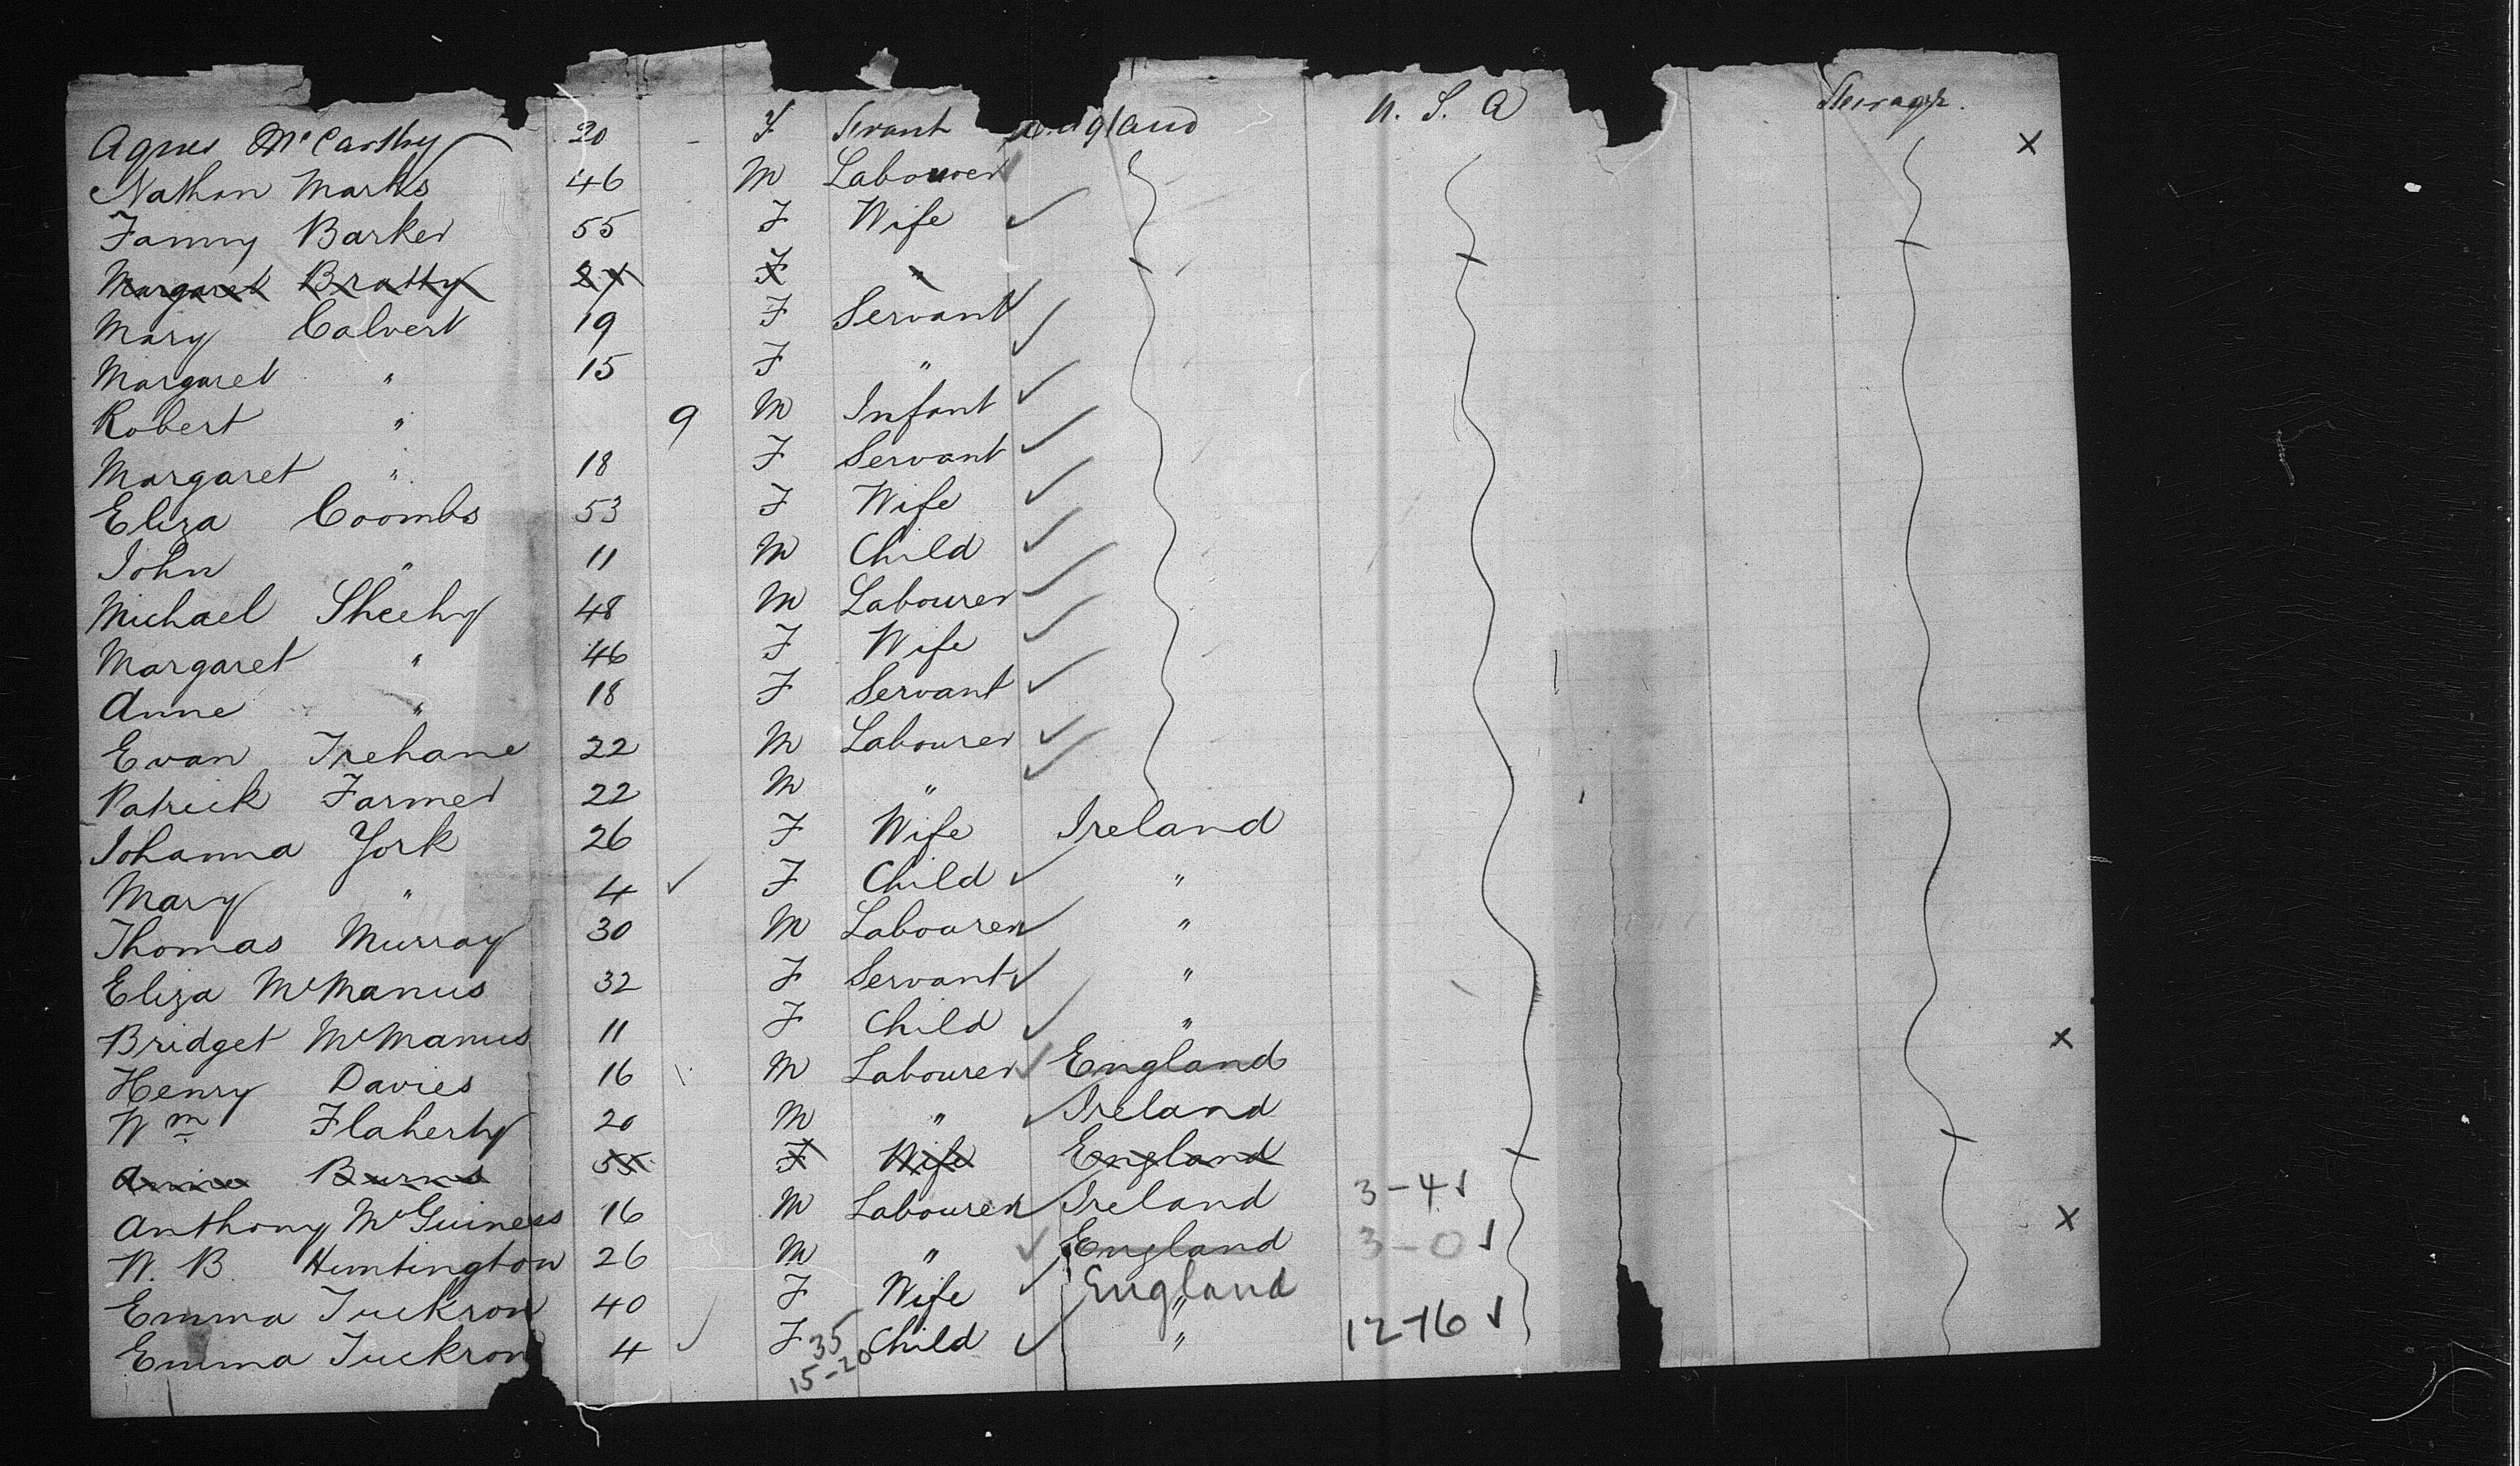 Agnes McCarthy 20 - F Servant England U. S. A Steerage. x
Nathan Marks 46 M Labourer ✓
Fanny Barker 55 F Wife ✓
Margaret Bratty F "
Mary Calvert 19 F Servant ✓
Margaret " 15 F " ✓
Robert " 9 M Infant ✓
Margaret " 18 F Servant ✓
Eliza Coombs 53 F Wife ✓
John " 11 M Child ✓
Michael Sheehy 48 M Labourer ✓
Margaret " 46 F Wife ✓
Anne " 18 F Servant ✓
Evan Trehane 22 M Labourer ✓
Patrick Farmer 22 M " ✓
Johanna York 26 F Wife Ireland
Mary " 4 ✓ F Child ✓ "
Thomas Murray 30 M Labourer ✓ "
Eliza McManus 32 F Servant ✓ "
Bridget McManus 11 F Child ✓ "
Henry Davies 16 M Labourer ✓ England x
Wm Flaherty 20 M " ✓ Ireland
Annie Burns 55 F Wife England
Anthony McGuiness 16 M Labourer ✓ Ireland 3-4 ✓
W. B. Huntington 26 M " ✓ England 3-0 ✓ x
Emma Tuckron 40 F Wife ✓ England "
Emma Tuckron 4 ✓ F Child ✓ " 12-16 ✓
35
15-20